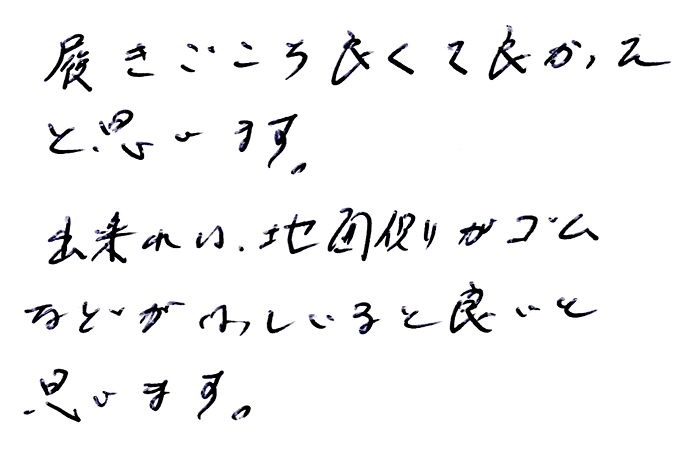 履きごころ良くて良かった
と思います。
出来れば、地面側がゴム
などがついていると良いと
思います。